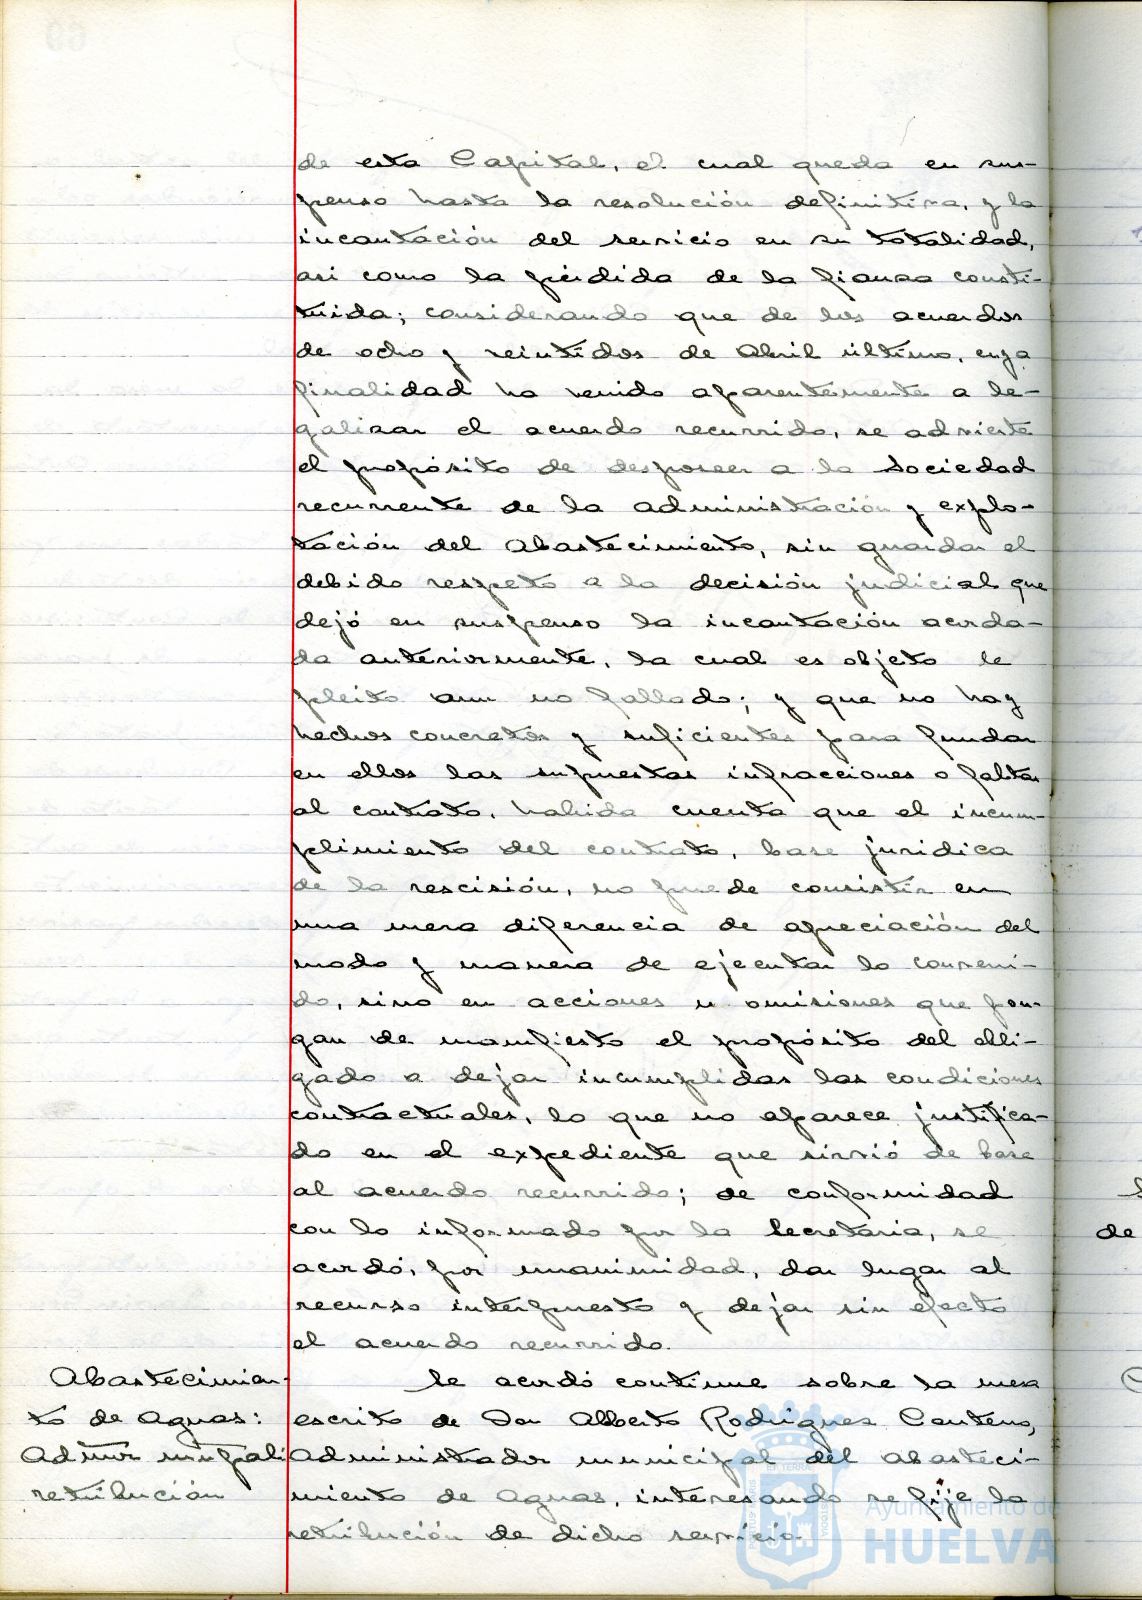 de esta Capital, el cual queda en sus-
penso hasta la resolución definitiva, y la
incautación del servicio en su totalidad,
asi como la pérdida de la fianza consti-
tuida; considerando que de los acuerdos
de ocho y veintidos de Abril último, cuya
finalidad ha venido aparentemente a le-
galizar el acuerdo recurrido, se advierte
el propósito de desposeer a la Sociedad
recurrente de la administración y explo-
tación del Abastecimiento, sin guardar el
debido respeto a la decisión judicial que
dejó en suspenso la incautación acorda-
da anteriormente, la cual es objeto de
pleito aun no fallado; y que no hay
hechos concretos y suficientes para fundar
en ellos las supuestas infracciones o faltas
al contrato, habida cuenta que el incum-
plimiento del contrato, base juridica
de la rescisión, no puede consistir en
una mera diferencia de apreciación del
modo y manera de ejecutar lo conveni-
do, sino en acciones u omisiones que pon-
gan de manifiesto el propósito del obli-
gado a dejar incumplidas las condiciones
contractuales, lo que no aparece justifica-
do en el expediente que sirvió de base
al acuerdo recurrido; de conformidad
con lo informado por la Secretaria, se
acordó, por unanimidad, dar lugar al
recurso interpuesto y dejar sin efecto
el acuerdo recurrido.
Abastecimien-
to de aguas:
Admor munpal:
retribución
Se acordó continue sobre la mesa
escrito de Don Alberto Rodriguez Centeno,
Administrador municipal del abasteci-
miento de Aguas, interesando se fije la
retribución de dicho servicio.
de
Ayuntamiento de
HUELVA